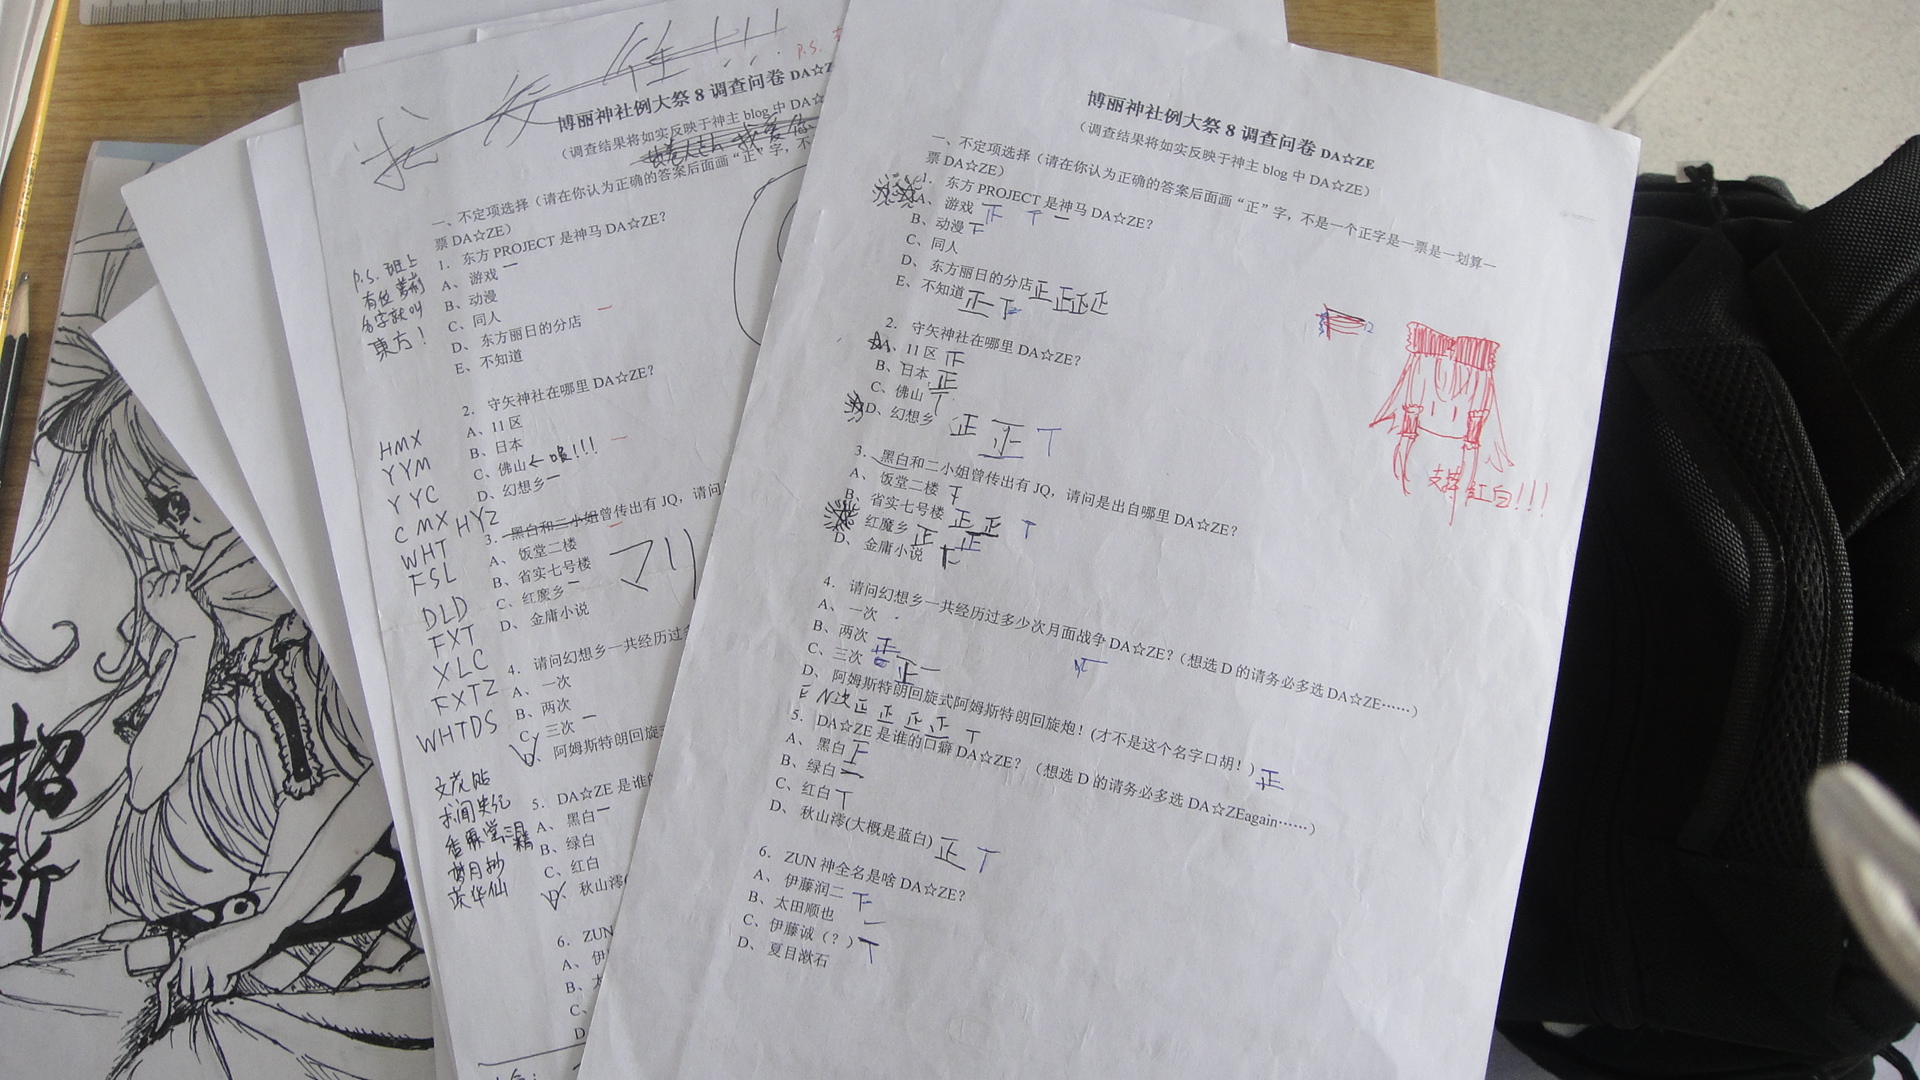 招新
P.S.
博丽神社例大祭 8 调查问卷 DA☆Z
（调查结果将如实反映于神主 blog 中 DA☆
一、不定项选择（请在你认为正确的答案后面画“正”字，不
票 DA☆ZE）
1. 东方 PROJECT 是神马 DA☆ZE?
A、游戏 一
B、动漫
C、同人
D、东方丽日的分店 一
E、不知道
P.S. 班上
有位萝莉
名字就叫
東方！
2. 守矢神社在哪里 DA☆ZE?
A、11 区
B、日本
C、佛山← 喂!!!
D、幻想乡 一
3. 黑白和二小姐曾传出有 JQ，请问
A、饭堂二楼
B、省实七号楼
C、红魔乡 一
D、金庸小说
マリ
4. 请问幻想乡一共经历过
A、一次
B、两次
C、三次 一
D、阿姆斯特朗回旋式
5. DA☆ZE 是谁
A、黑白 一
B、绿白
C、红白
D、秋山澪(
6. ZUN
A、伊
B、太
C、
D
HMX
YYM
YYC
CMX HYZ
WHT
FSL
DLD
FXT
XLC
FXTZ
WHTDS
文花帖
求闻史纪
香霖堂 三月精
梦月抄
茨华仙
博丽神社例大祭 8 调查问卷 DA☆ZE
（调查结果将如实反映于神主 blog 中 DA☆ZE）
一、不定项选择（请在你认为正确的答案后面画“正”字，不是一个正字是一票是一划算一
票 DA☆ZE）
1. 东方 PROJECT 是神马 DA☆ZE?
A、游戏 正
B、动漫
C、同人
D、东方丽日的分店 正 正 正 正
E、不知道 正
2. 守矢神社在哪里 DA☆ZE?
A、11 区
B、日本 正
C、佛山
D、幻想乡 正 正
3. 黑白和二小姐曾传出有 JQ，请问是出自哪里 DA☆ZE?
A、饭堂二楼
B、省实七号楼 正 正
C、红魔乡 正 正
D、金庸小说
4. 请问幻想乡一共经历过多少次月面战争 DA☆ZE?（想选 D 的请务必多选 DA☆ZE……）
A、一次
B、两次 正
C、三次 正 一
D、阿姆斯特朗回旋式阿姆斯特朗回旋炮！(才不是这个名字口胡！) 正
E N次 正 正 正 正
5. DA☆ZE 是谁的口癖 DA☆ZE?（想选 D 的请务必多选 DA☆ZEagain……）
A、黑白
B、绿白
C、红白
D、秋山澪(大概是蓝白) 正
6. ZUN 神全名是啥 DA☆ZE?
A、伊藤润二
B、太田顺也 一
C、伊藤诚（?）
D、夏目漱石
支持 红白!!!